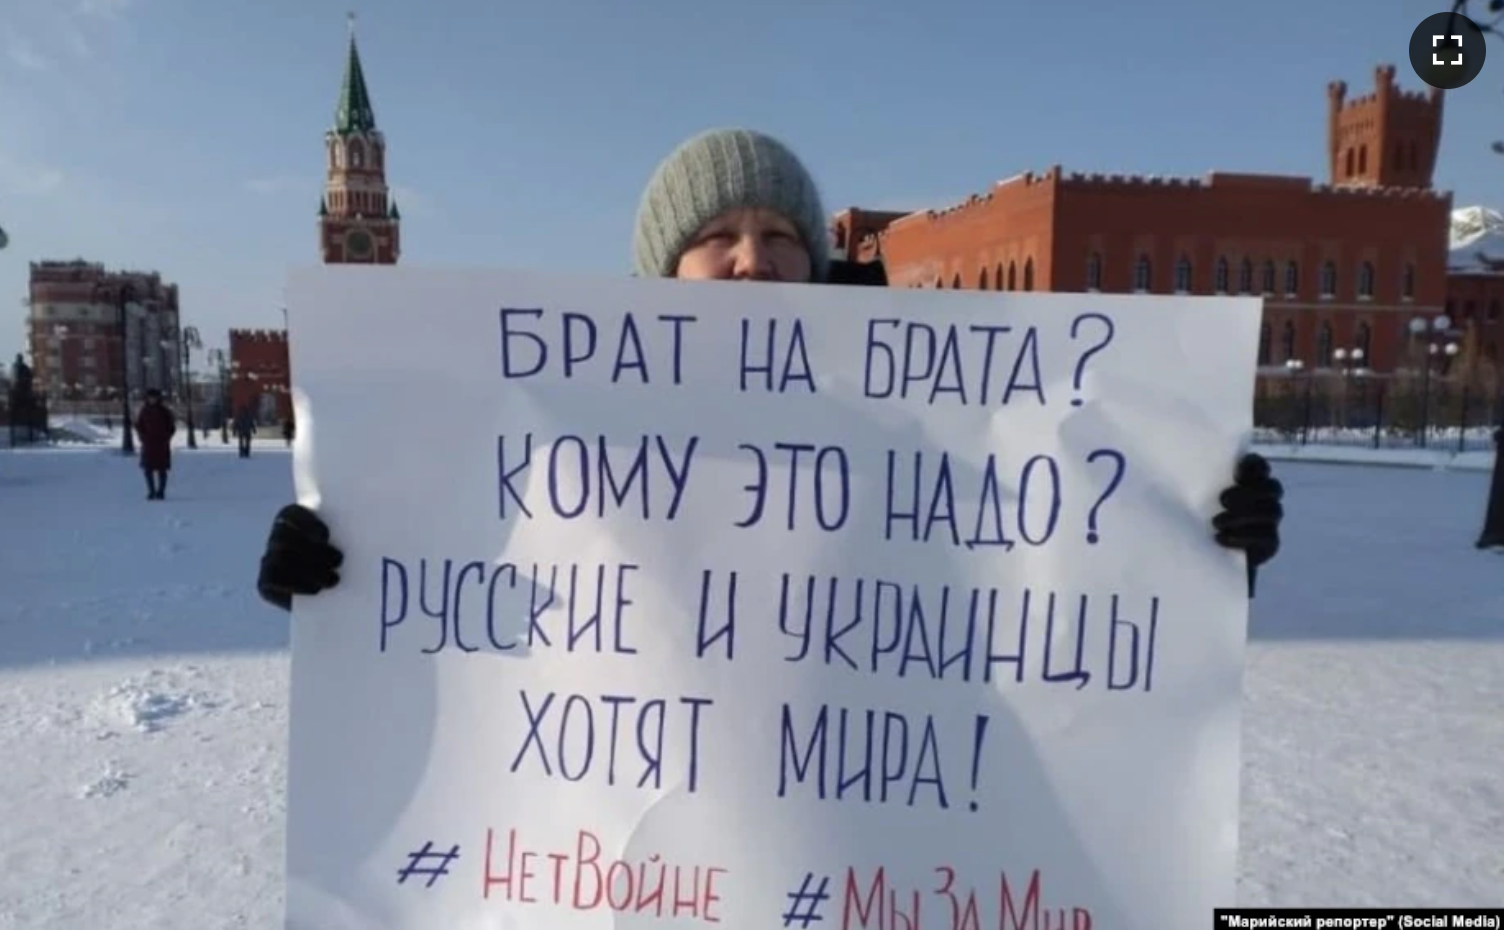 БРАТ НА БРАТА?
КОМУ ЭТО НАДО?
РУССКИЕ И УКРАИНЦЫ
ХОТЯТ МИРА!
#НетВойне #МыЗаМир
"Марийский репортер" (Social Media)